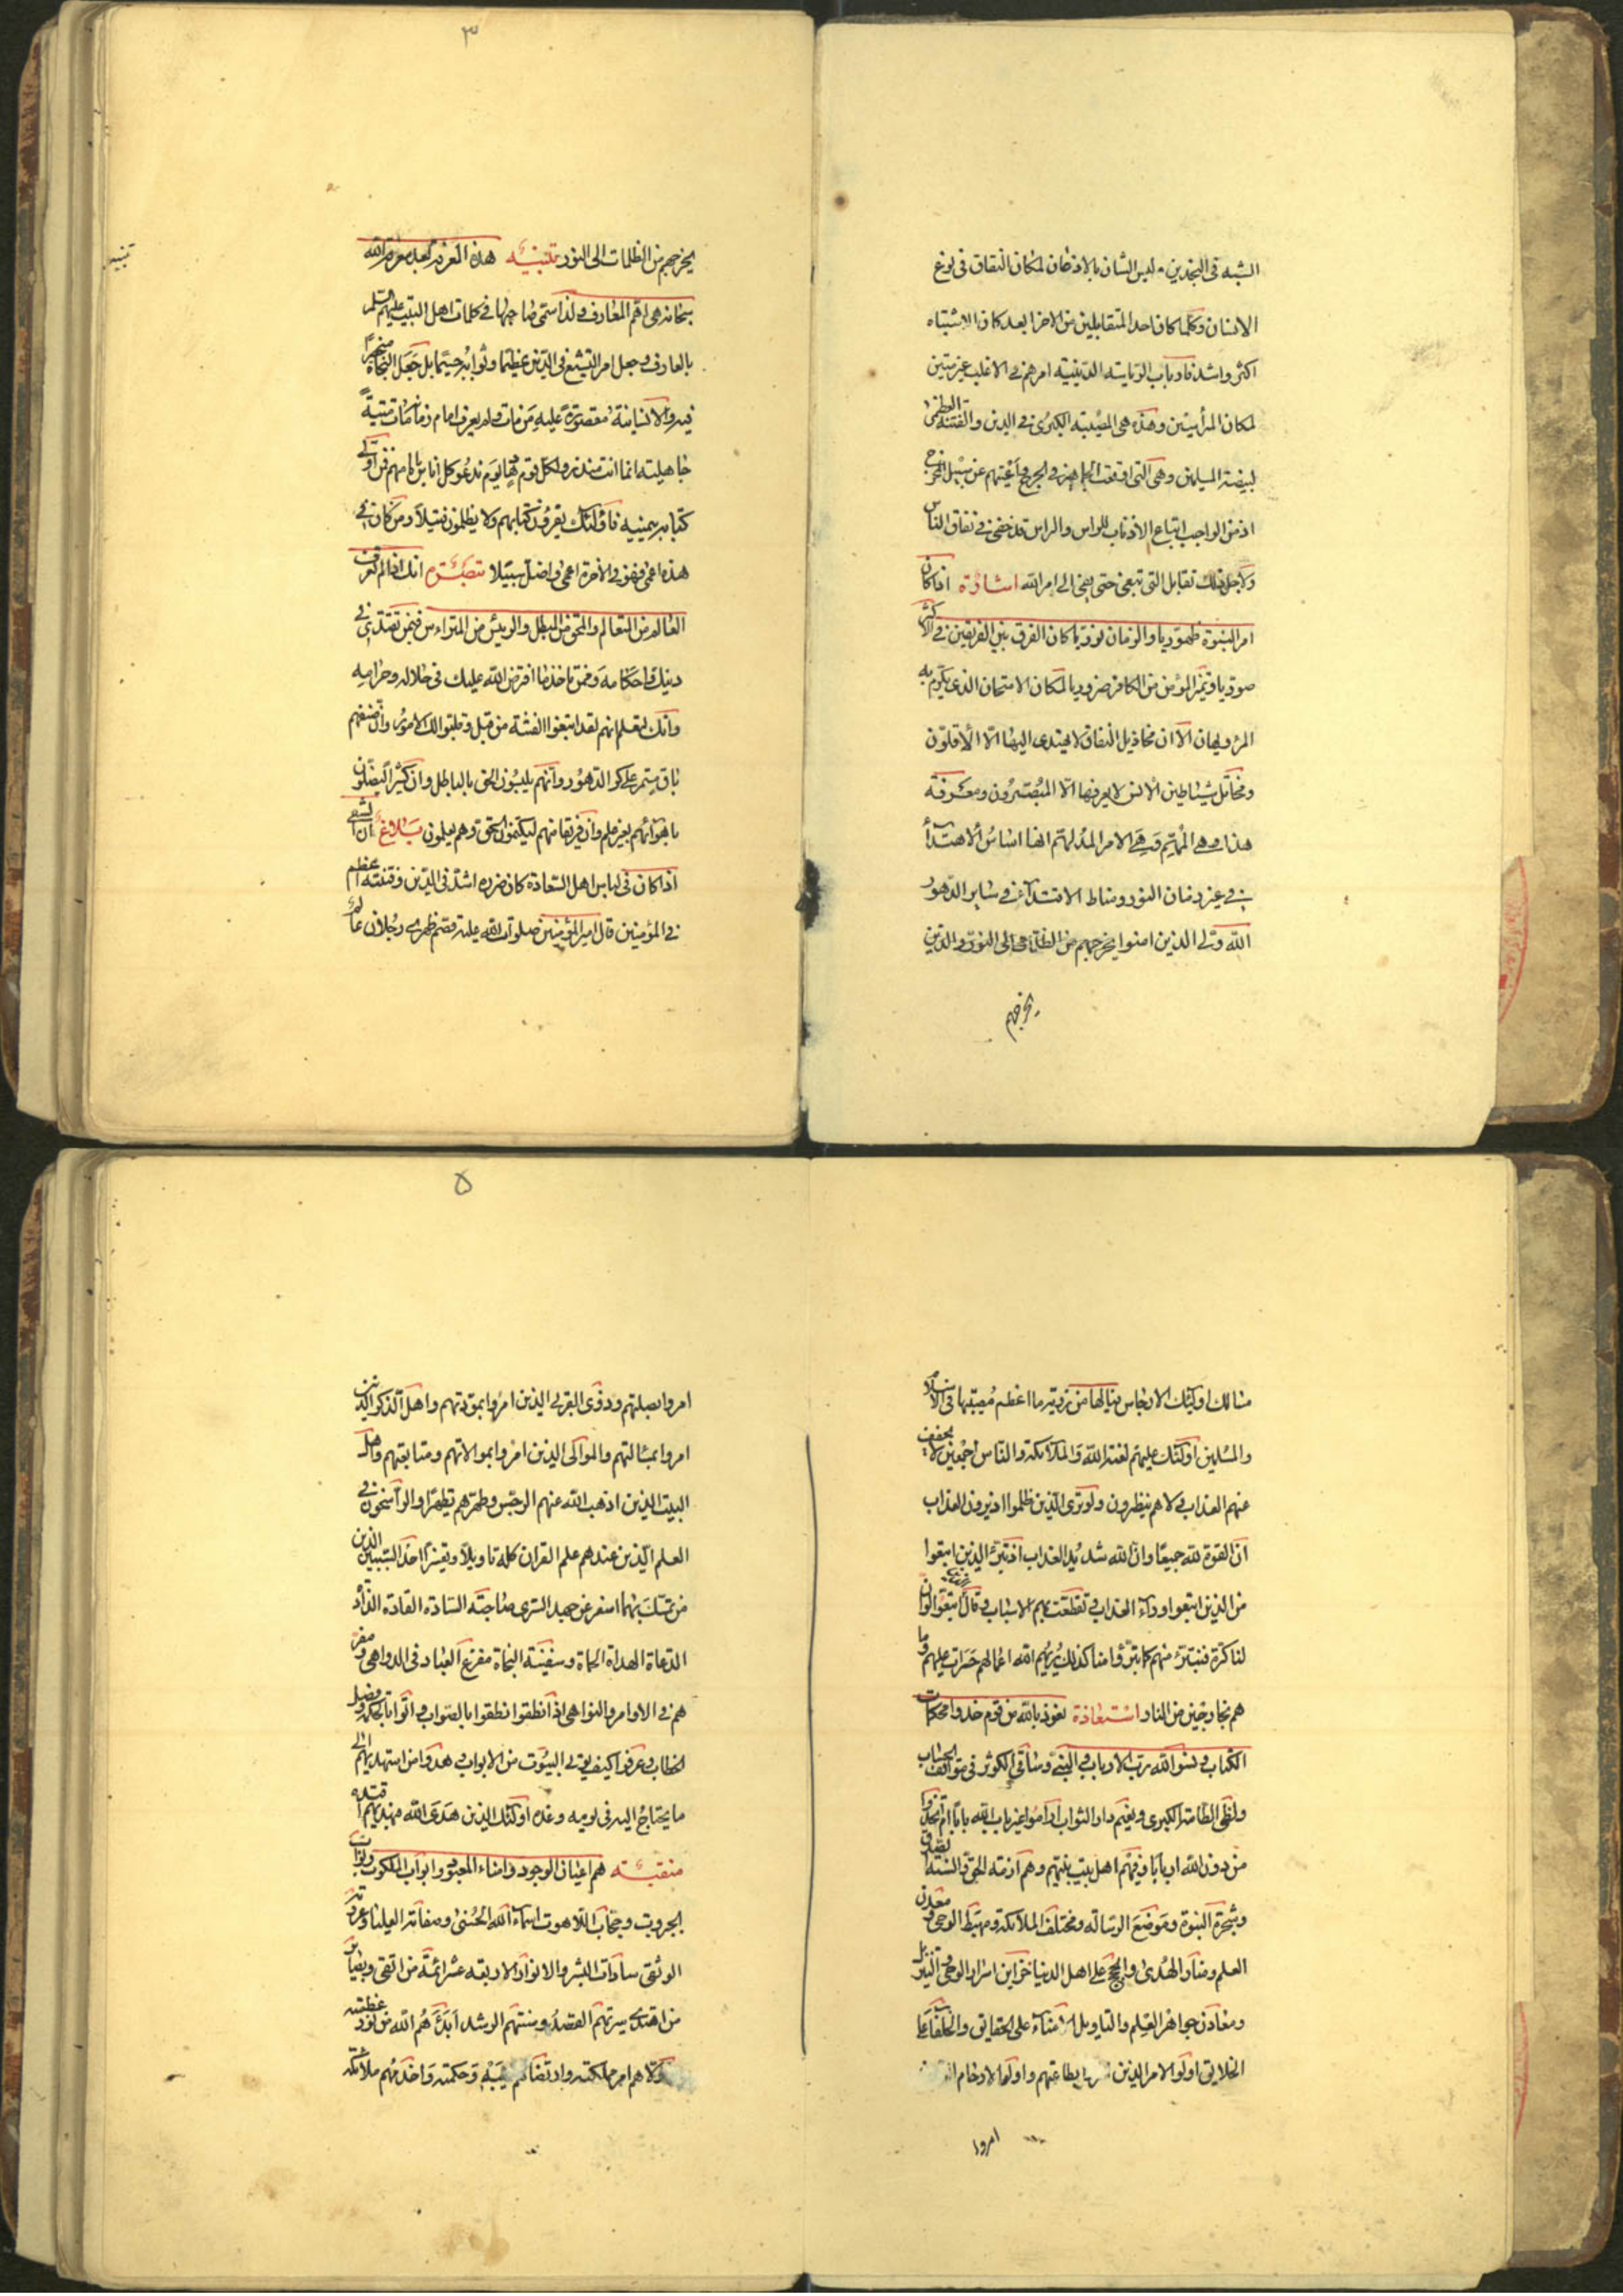 الشبه في النجدين وليس الشان بالاذعان لمكان النفاق في نوع
الانسان وكلما كان احد المتقابلين من الاخر ابعد كان الاشتباه
اكثر واشد فارباب الرياسة الدينية امرهم في الاغلب غير متبين
لمكان المرائيين وهذه هي المصيبة الكبرى في الدين والفتنة العظمى
لبيضة المسلمين وهي التي اوقعت الجماهير في الهرج واعمتهم عن سبيل المخرج
اذ من الواجب اتباع الاذناب للراس والراس قد خفي في نفاق الناس
ولاجل ذلك تقابل التي تبغي حتى تفيء الى امر الله اشارة اذا كان
امر النبوة ظهوريا والزمان نوريا كان الفرق بين الفريقين في الاكثر
صوريا وتميز المؤمن من الكافر ضروريا لمكان الامتحان الذي يكرم به
المرء ويهان الا ان مخاذيل النفاق لا يهتدي اليها الا الاقلون
ومخاتل شياطين الانس لا يعرفها الا المتبصرون ومعرفة
هذا وهي المهم وهي الامر المدلهم انها اساس الاهتداء
في غير زمان النور ومناط الاقتداء في ساير الدهور
الله ولي الذين امنوا يخرجهم من الظلمات الى النور والذين
يخرجهم
٣
تنبيه
يخرجهم من الظلمات الى النور تنبيه هذه المعرفة بعد معرفة الله
سبحانه هي اقم المعارف ولذا سمي صاحبها في كلمات اهل البيت عليهم السلم
بالعارف وجعل امر التشيع في الدين عظيما وثوابه جسيما بل جعل النجاة منحصرا
فيه والانسانية مقصورة عليه من مات ولم يعرف امام زمانه مات ميتة
جاهلية انما انت منذر ولكل قوم هاد يوم ندعو كل اناس بامامهم فمن اوتي
كتابه بيمينه فاولئك يقرؤن كتابهم ولا يظلمون فتيلا ومن كان في
هذه اعمى فهو في الاخرة اعمى واضل سبيلا تبصرة انك اذا لم تعرف
العالم من المتعالم والمحق من المبطل والرئيس من المترائس فبمن تقتدي في
دينك واحكامه وممن تاخذ ما افترض الله عليك في حلاله وحرامه
وانك لتعلم انهم لقد ابتغوا الفتنة من قبل وقلبوا لك الامور وان ضغنهم
باق مستمر على كر الدهور وانهم يلبسون الحق بالباطل وان كثيرا ليضلون
باهوائهم بغير علم وان فريقا منهم ليكتمون الحق وهم يعلمون بلاغ ان الشقي
اذا كان في لباس اهل السعادة كان ضرره اشد في الدين وفتنته اعظم
في المؤمنين قال امير المؤمنين صلوات الله عليه قصم ظهري رجلان عالم
مثالك اولئك الارجاس فيالها من رزية ما اعظم مصيبتها في الاسلام
والمسلمين اولئك عليهم لعنة الله والملائكة والناس اجمعين لا يخفف
عنهم العذاب ولا هم ينظرون ولو ترى الذين ظلموا اذ يرون العذاب
ان القوة لله جميعا وان الله شديد العذاب اذ تبرء الذين اتبعوا
من الذين اتبعوا وراوا العذاب وتقطعت بهم الاسباب وقال الذين اتبعوا لو ان
لنا كرة فنتبرء منهم كما تبرؤا منا كذلك يريهم الله اعمالهم حسرات عليهم وما
هم بخارجين من النار استعاذة نعوذ بالله من قوم حذفوا محكمات
الكتاب ونسوا الله رب الارباب والنبي وساقي الكوثر في مواقف الحساب
ولظى الطامة الكبرى ونعيم دار الثواب اراموا غير باب الله بابا ام اتخذوا
من دون الله اربابا وفيهم اهل بيت نبيهم وهم ازمة الحق والسنة الصدق
وشجرة النبوة وموضع الرسالة ومختلف الملائكة ومهبط الوحي ومعدن
العلم ومنار الهدى والحجج على اهل الدنيا خزاين اسرار الوحي والتنزيل
ومعادن جواهر العلم والتاويل الامناء على الحقايق والخلفاء على
الخلايق اولوا الامر الذين امروا بطاعتهم واولوا الارحام الذين
امروا
٥
امروا بصلتهم وذوي القربى الذين امروا بمودتهم واهل الذكر الذين
امروا بمسالتهم والموالي الذين امروا بموالاتهم ومتابعتهم واهل
البيت الذين اذهب الله عنهم الرجس وطهرهم تطهيرا والراسخون في
العلم الذين عندهم علم القران كله تاويلا وتفسيرا احد السببين الذين
من تمسك بهما اسفر عن حميد السرى صباحته السادة القادة الذادة
الدعاة الهداة الحماة وسفينة النجاة مفزع العباد في الدواهي ومفر
هم في الاوامر والنواهي اذا نطقوا نطقوا بالصواب واتوا بالحكمة وفصل
الخطاب وعرفوا كيف يؤتى البيوت من الابواب وهدوا من استهديهم الى
ما يحتاج اليه في يومه وغده اولئك الذين هدى الله فبهديهم اقتده
منقبة هم اعيان الوجود وامناء المعبود وابواب الملكوت ونواب
الجبروت وحجاب اللاهوت اسماء الله الحسنى وصفاته العليا وعروته
الوثقى سادات البشر والانوار الاربعة عشر ائمة من اتقى وبصاير
من اهتدى سيرتهم القصد وسنتهم الرشد ابدءهم الله من نور عظمته
وولاهم امر مملكته وارتضاهم لغيبه وحكمته واخدمهم ملائكته